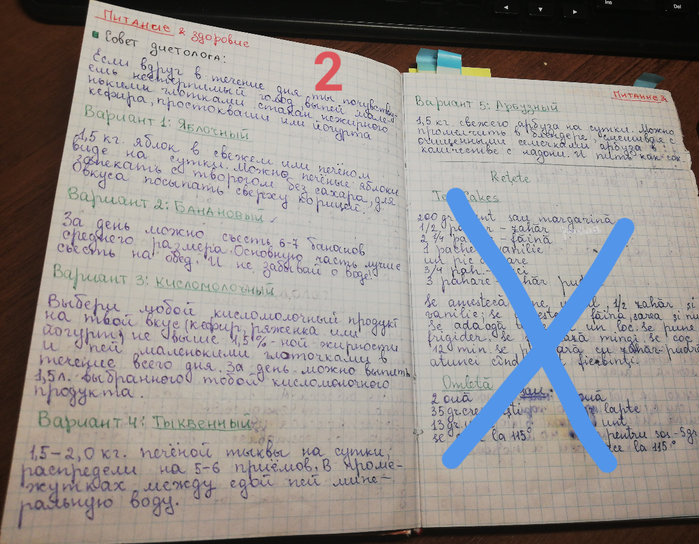 Питание & здоровие
2
Совет диетолога:
Если вдруг в течение дня ты почувству-
ешь нестерпимый голод, выпей мален-
нькими глотками стакан нежирного
кефира, простокваши или йогурта
Вариант 1: Яблочный
1,5 кг. яблок в свежем или печёном
виде на сутки. Можно печёные яблоки
запекать с творогом без сахара, для
вкуса посыпать сверху корицей.
Вариант 2: Банановый
За день можно съесть 6-7 бананов
среднего размера. Основную часть лучше
съесть на обед. И не забывай о воде.
Вариант 3: кисломолочный
Выбери любой кисломолочный продукт
на твой вкус (кефир, ряженка или
йогурт) не выше 1,5%-ной жирности
и пей маленькими глоточками в
течение всего дня. За день можно выпить
1,5л. выбранного тобой кисломолочного
продукта.
Вариант 4: Тыквенный
1,5-2,0 кг. печёной тыквы на сутки,
распредели на 5-6 приёмов. В проме-
жутках между едой пей мине-
ральную воду.
Питание &
Вариант 5: Арбузный
1,5 кг. свежего арбуза на сутки. Можно
в блендере
очищенными семечками арбуза в
количестве с ладони. И пить как сок
Rețete
Cakes
200 gr unt sau margarină
1/2 pah - zahăr
2 1/4 pah - făină
1 pache vanilie
un pic sare
3/4 pah. - nuci
3 pahare zahăr pud
se amestecă 1/2 zahăr și
vanilie; se făină, sarea și nu
Se adaugă un loc. se pune
frigider. se mingi. se coc
12 min. se cu zahăr pudră
atunci fierbinți.
Omletă
2 ouă
35 gr lapte
13 gr unt
se la 115° pentru sos-5gr
la 115°